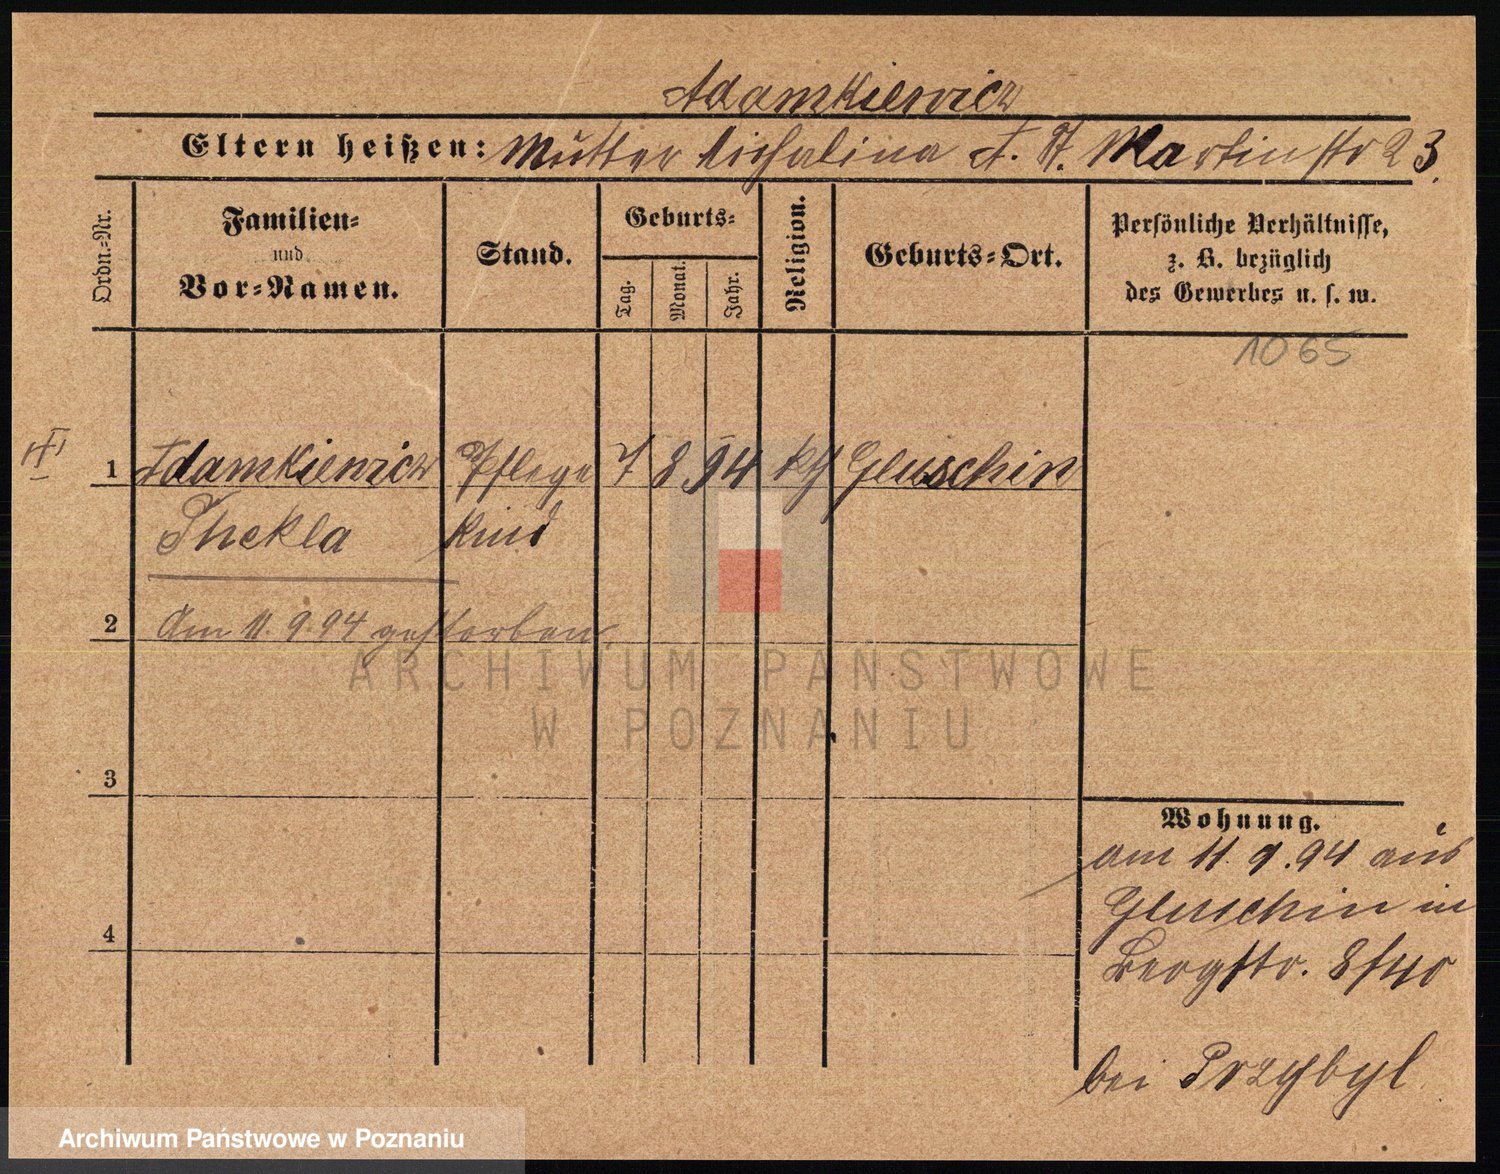 Adamkiewicz
Eltern heißen: Mutter A. St. Martinstr 23.
Ordn.-Nr.
Familien-
und
Vor-Namen.
Stand.
Geburts-
Tag.
Monat.
Jahr.
Religion.
Geburts-Ort.
Persönliche Verhältnisse,
z. B. bezüglich
des Gewerbes u. s. w.
1065
1 Adamkiewicz Pflege 7 8 94 kth Gluschin
Thekla kind
2 Am 11.9.94 gestorben.
3
4
Wohnung.
am 11.9.94 aus
Gluschin in
Bergstr.
bei Przybyl
ARCHIWUM PAŃSTWOWE
W POZNANIU
Archiwum Państwowe w Poznaniu